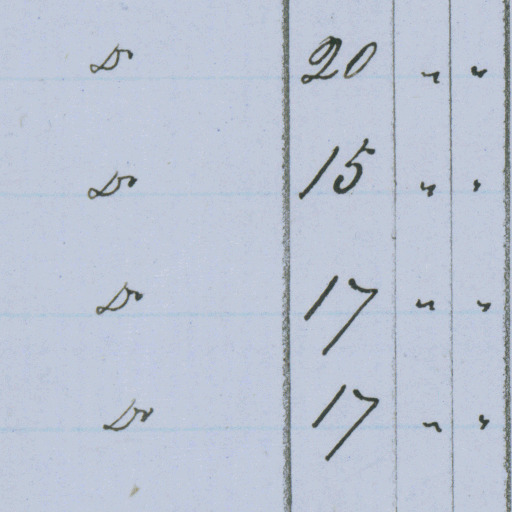 Do 20 " "
Do 15 " "
Do 17 " "
Do 17 " "